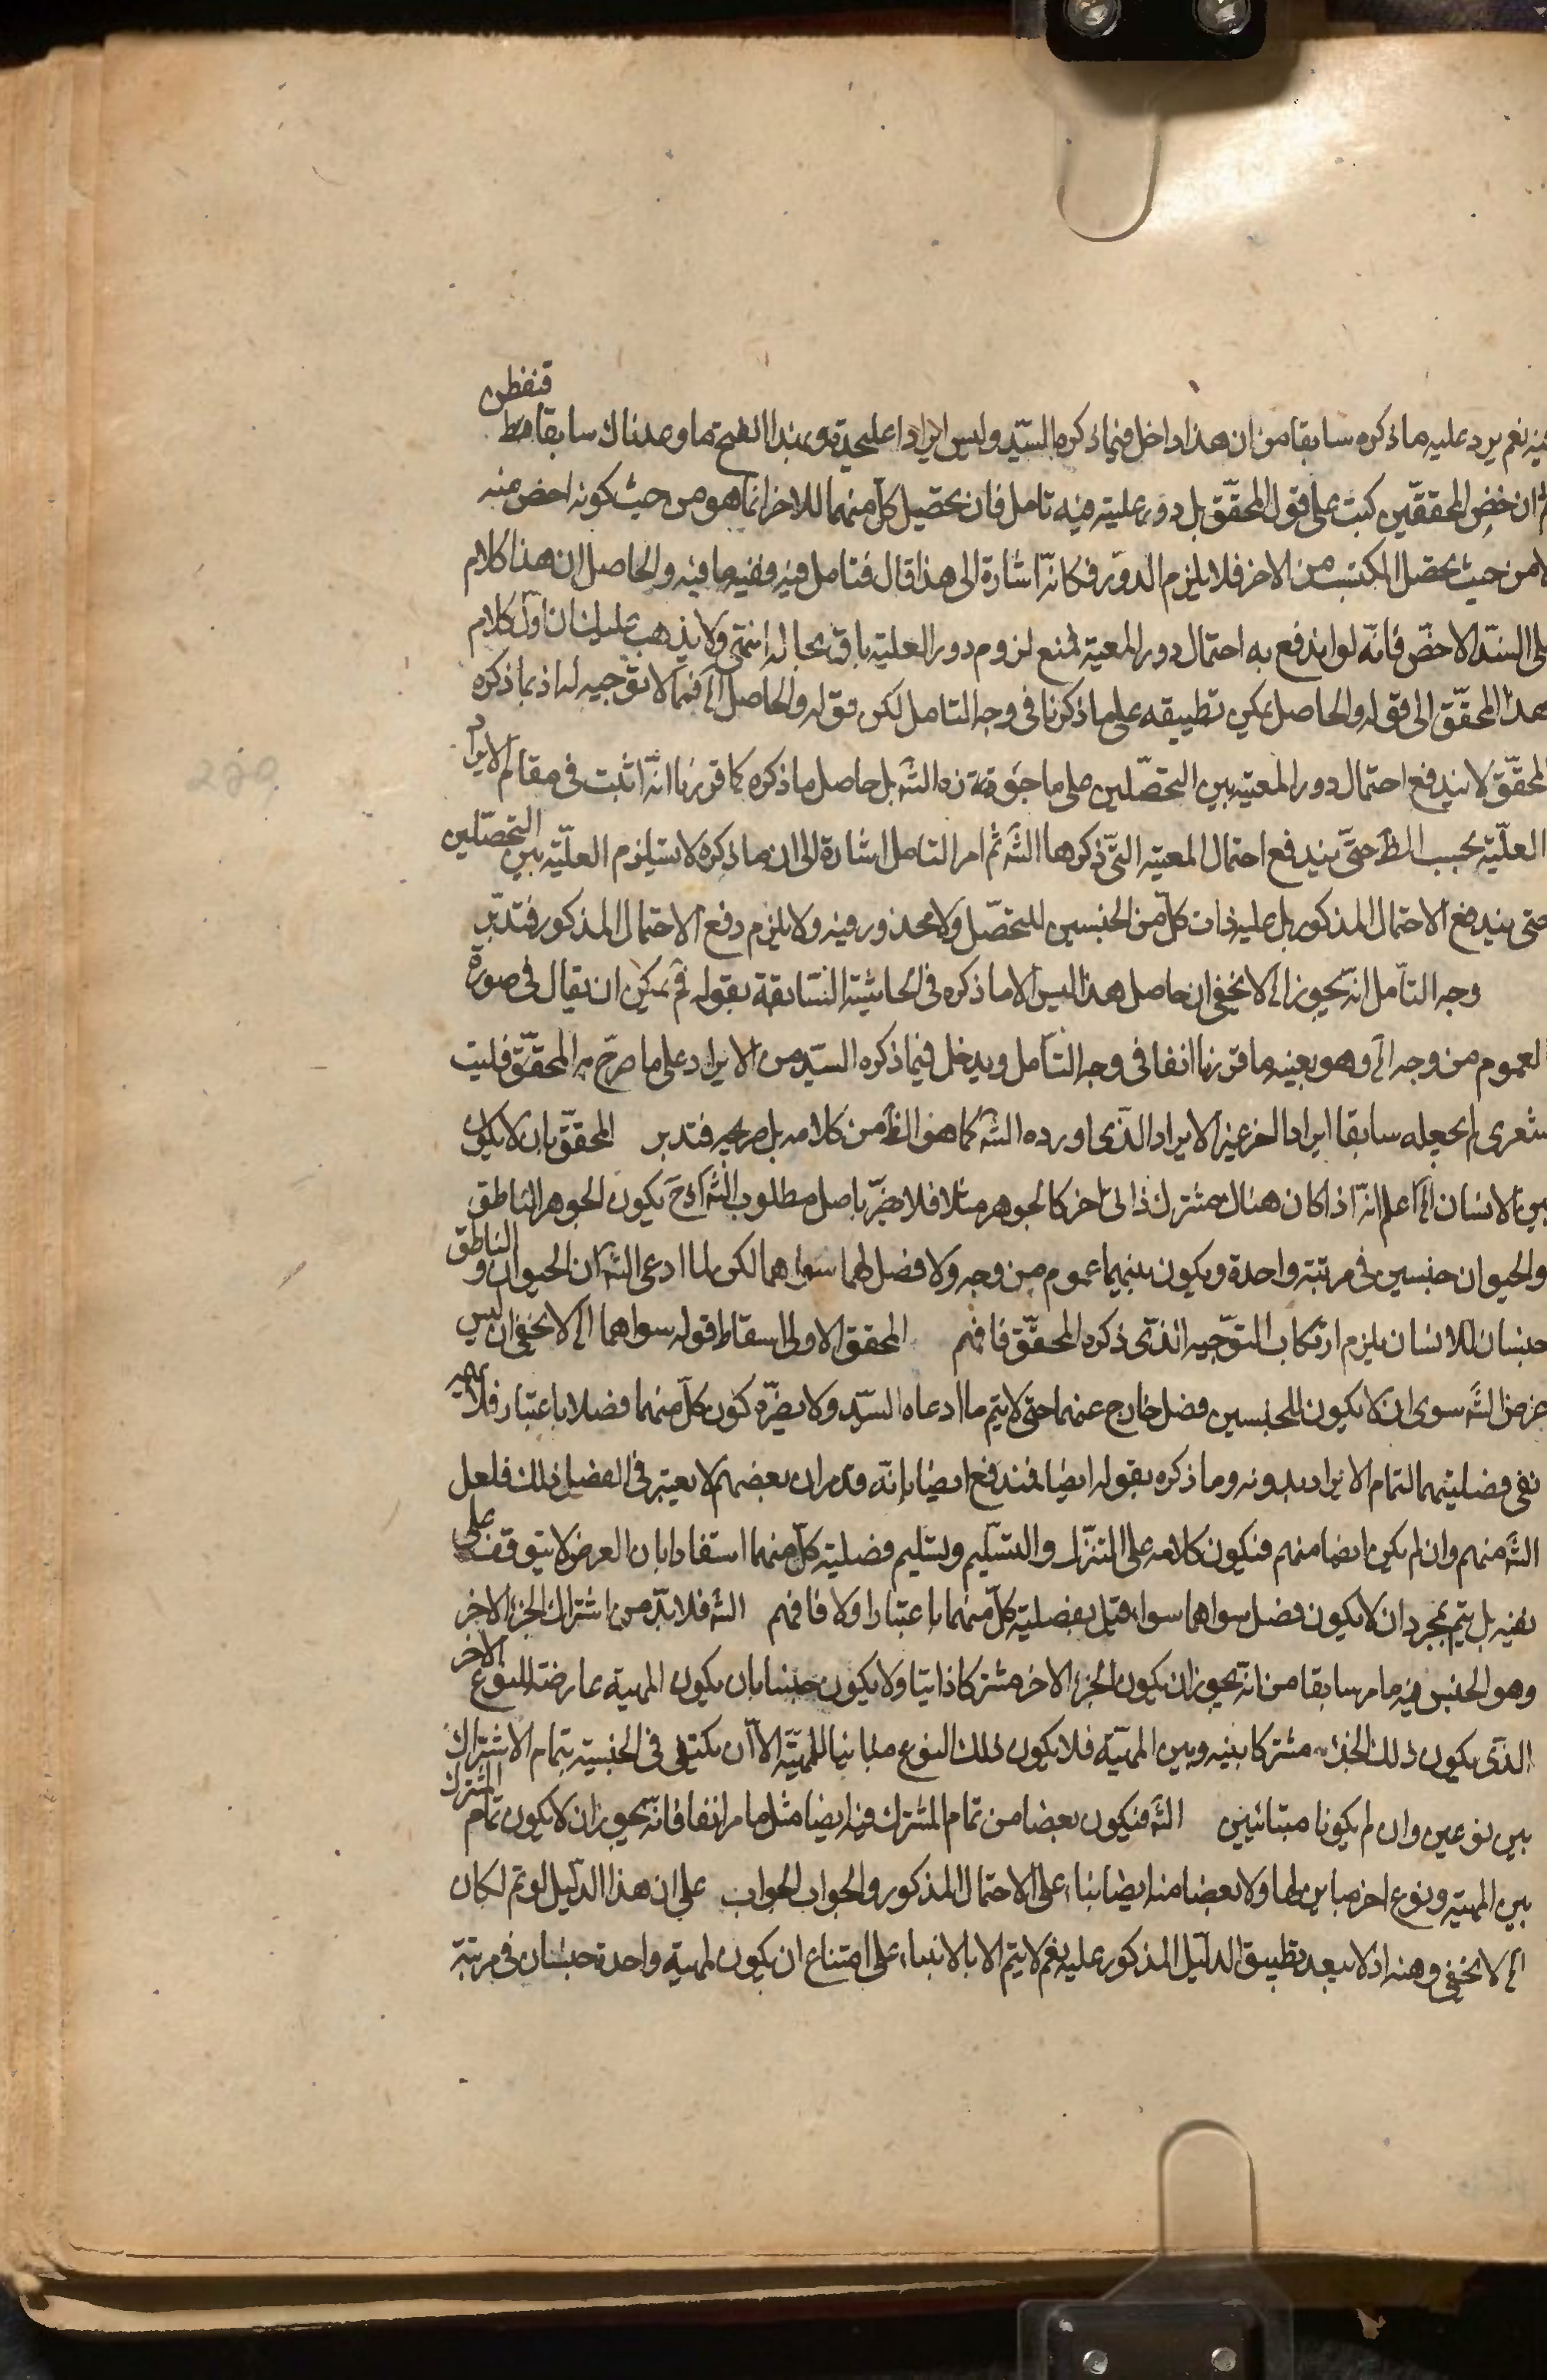 فيه نعم يرد عليه ما ذكره سابقا من ان هذا داخل فيما ذكره السيد وليس ايرادا عليحدة وبهذا اتضح ما وعدناك سابقا فتفطن
ثم ان بعض المحققين كتب على قول المحقق بل دور علية فيه تامل فان تحصيل كل منهما للاخر انما هو من حيث كونه اخص منه
لا من حيث تحصل المكتسب من الاخر فلا يلزم الدور فكانه اشارة الى هذا قال فتامل فيه وفيه ما فيه والحاصل ان هذا كلام
على السند الاخص فانه لو اندفع به احتمال دور المعية لمنع لزوم دور العلية باق بحاله انتهى ولا يذهب عليك ان اول كلام
هذا المحقق الى قوله والحاصل يمكن تطبيقه على ما ذكرنا في وجه التامل لكن قوله والحاصل الخ فمما لا توجيه له اذ بما ذكره
المحقق لا يندفع احتمال دور المعية بين التحصلين على ما جوزه الشه بل حاصل ما ذكره كما قررنا انه اثبت في مقام الايراد
العلية بحسب الظ حتى يندفع احتمال المعية التي ذكرها الشه ثم امر التامل اشارة الى ان ما ذكره لا يستلزم العلية بين التحصلين
حتى يندفع الاحتمال المذكور بل علية ذات كل من الجنسين للتحصل ولا محذور فيه ولا يلزم دفع الاحتمال المذكور فتدبر
وجه التامل انه يجوز الخ لا يخفى ان حاصل هذا ليس الا ما ذكره في الحاشية السابقة بقوله ثم يمكن ان يقال في صورة
العموم من وجه الخ وهو بعينه ما قررنا انفا في وجه التامل ويدخل فيما ذكره السيد من الايراد على ما صرح به المحقق فليت
شعرى لم يجعله سابقا ايرادا اخر غير الايراد الذى اورده الشه كما هو الظ من كلامه بل صريحه فتدبر المحقق بان لا يكون
بين الانسان الخ اعلم انه اذا كان هناك مشترك ذاتى اخر كالجوهر مثلا فلا يضر باصل مطلوب الشه اذ ح يكون الجوهر الناطق
والحيوان جنسين في مرتبة واحدة ويكون بينهما عموم من وجه ولا فصل لهما سواهما لكن لما ادعى الشه ان الحيوان والناطق
جنسان للانسان يلزم ارتكاب التوجيه الذى ذكره المحقق فافهم المحقق الاولى اسقاط قوله سواهما الخ لا يخفى ان ليس
غرض الشه سوى ان لا يكون للجنسين فصل خارج عنهما حتى لا يتم ما ادعاه السيد ولا يضره كون كل منهما فصلا باعتبار فلا
نفى فصليتهما لتمام الايراد بدونه وما ذكره بقوله ايضا فمندفع ايضا بانه قد مر ان بعضهم لا يعتبر في الفصل ذلك فلعل
الشه منهم وان لم يكن ايضا منهم فيكون كلامه على التنزل والتسليم وتسليم فصلية كل منهما استفادا بان الغرض لا يتوقف على
نفيه بل يتم بمجرد ان لا يكون فصل سواهما سواء قيل بفصلية كل منهما باعتبار اولا فافهم الشه فلا بد من اشتراك الجزء الاخر
وهو الجنس فيه ما مر سابقا من انه يجوز ان يكون الجزء الاخر مشتركا ذاتيا ولا يكون جنسا بان يكون المهية عارضة للنوع الاخر
الذى يكون ذلك الجزء مشتركا بينه وبين المهية فلا يكون ذلك النوع مباينا للمهية الا ان يكتفى في الجنسية بتمام الاشتراك
بين نوعين وان لم يكونا متباينين الشه فيكون بعضا من تمام المشترك فيه ايضا مثل ما مر انفا فانه يجوز ان لا يكون تمام المشترك
بين المهية ونوع اخر مباين لها ولا بعضا منه ايضا بناء على الاحتمال المذكور والجواب الجواب على ان هذا الدليل لو تم لكان
الخ لا يخفى وهنه اذ لا يبعد تطبيق الدليل المذكور عليه نعم لا يتم الا بالابتناء على امتناع ان يكون لمهية واحدة جنسان في مرتبة